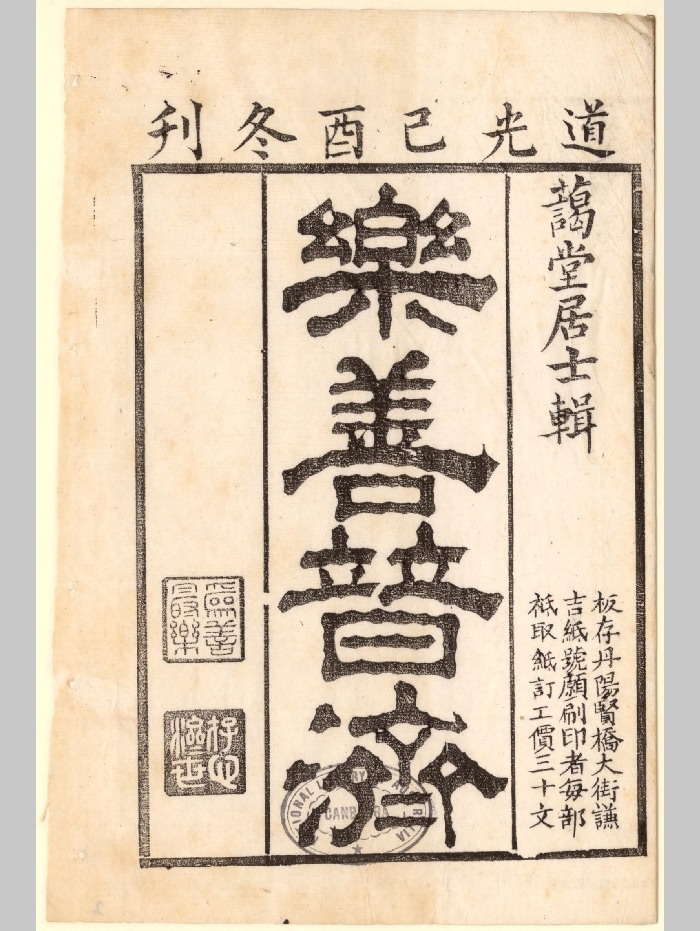 道光己酉冬刊
藹堂居士輯
板存丹陽賢橋大街謙
吉紙號願刷印者每部
祗取紙訂工價三十文
樂善普濟
為善
最樂
存心
濟世
NATIONAL LIBRARY AUSTRALIA
CANBERRA